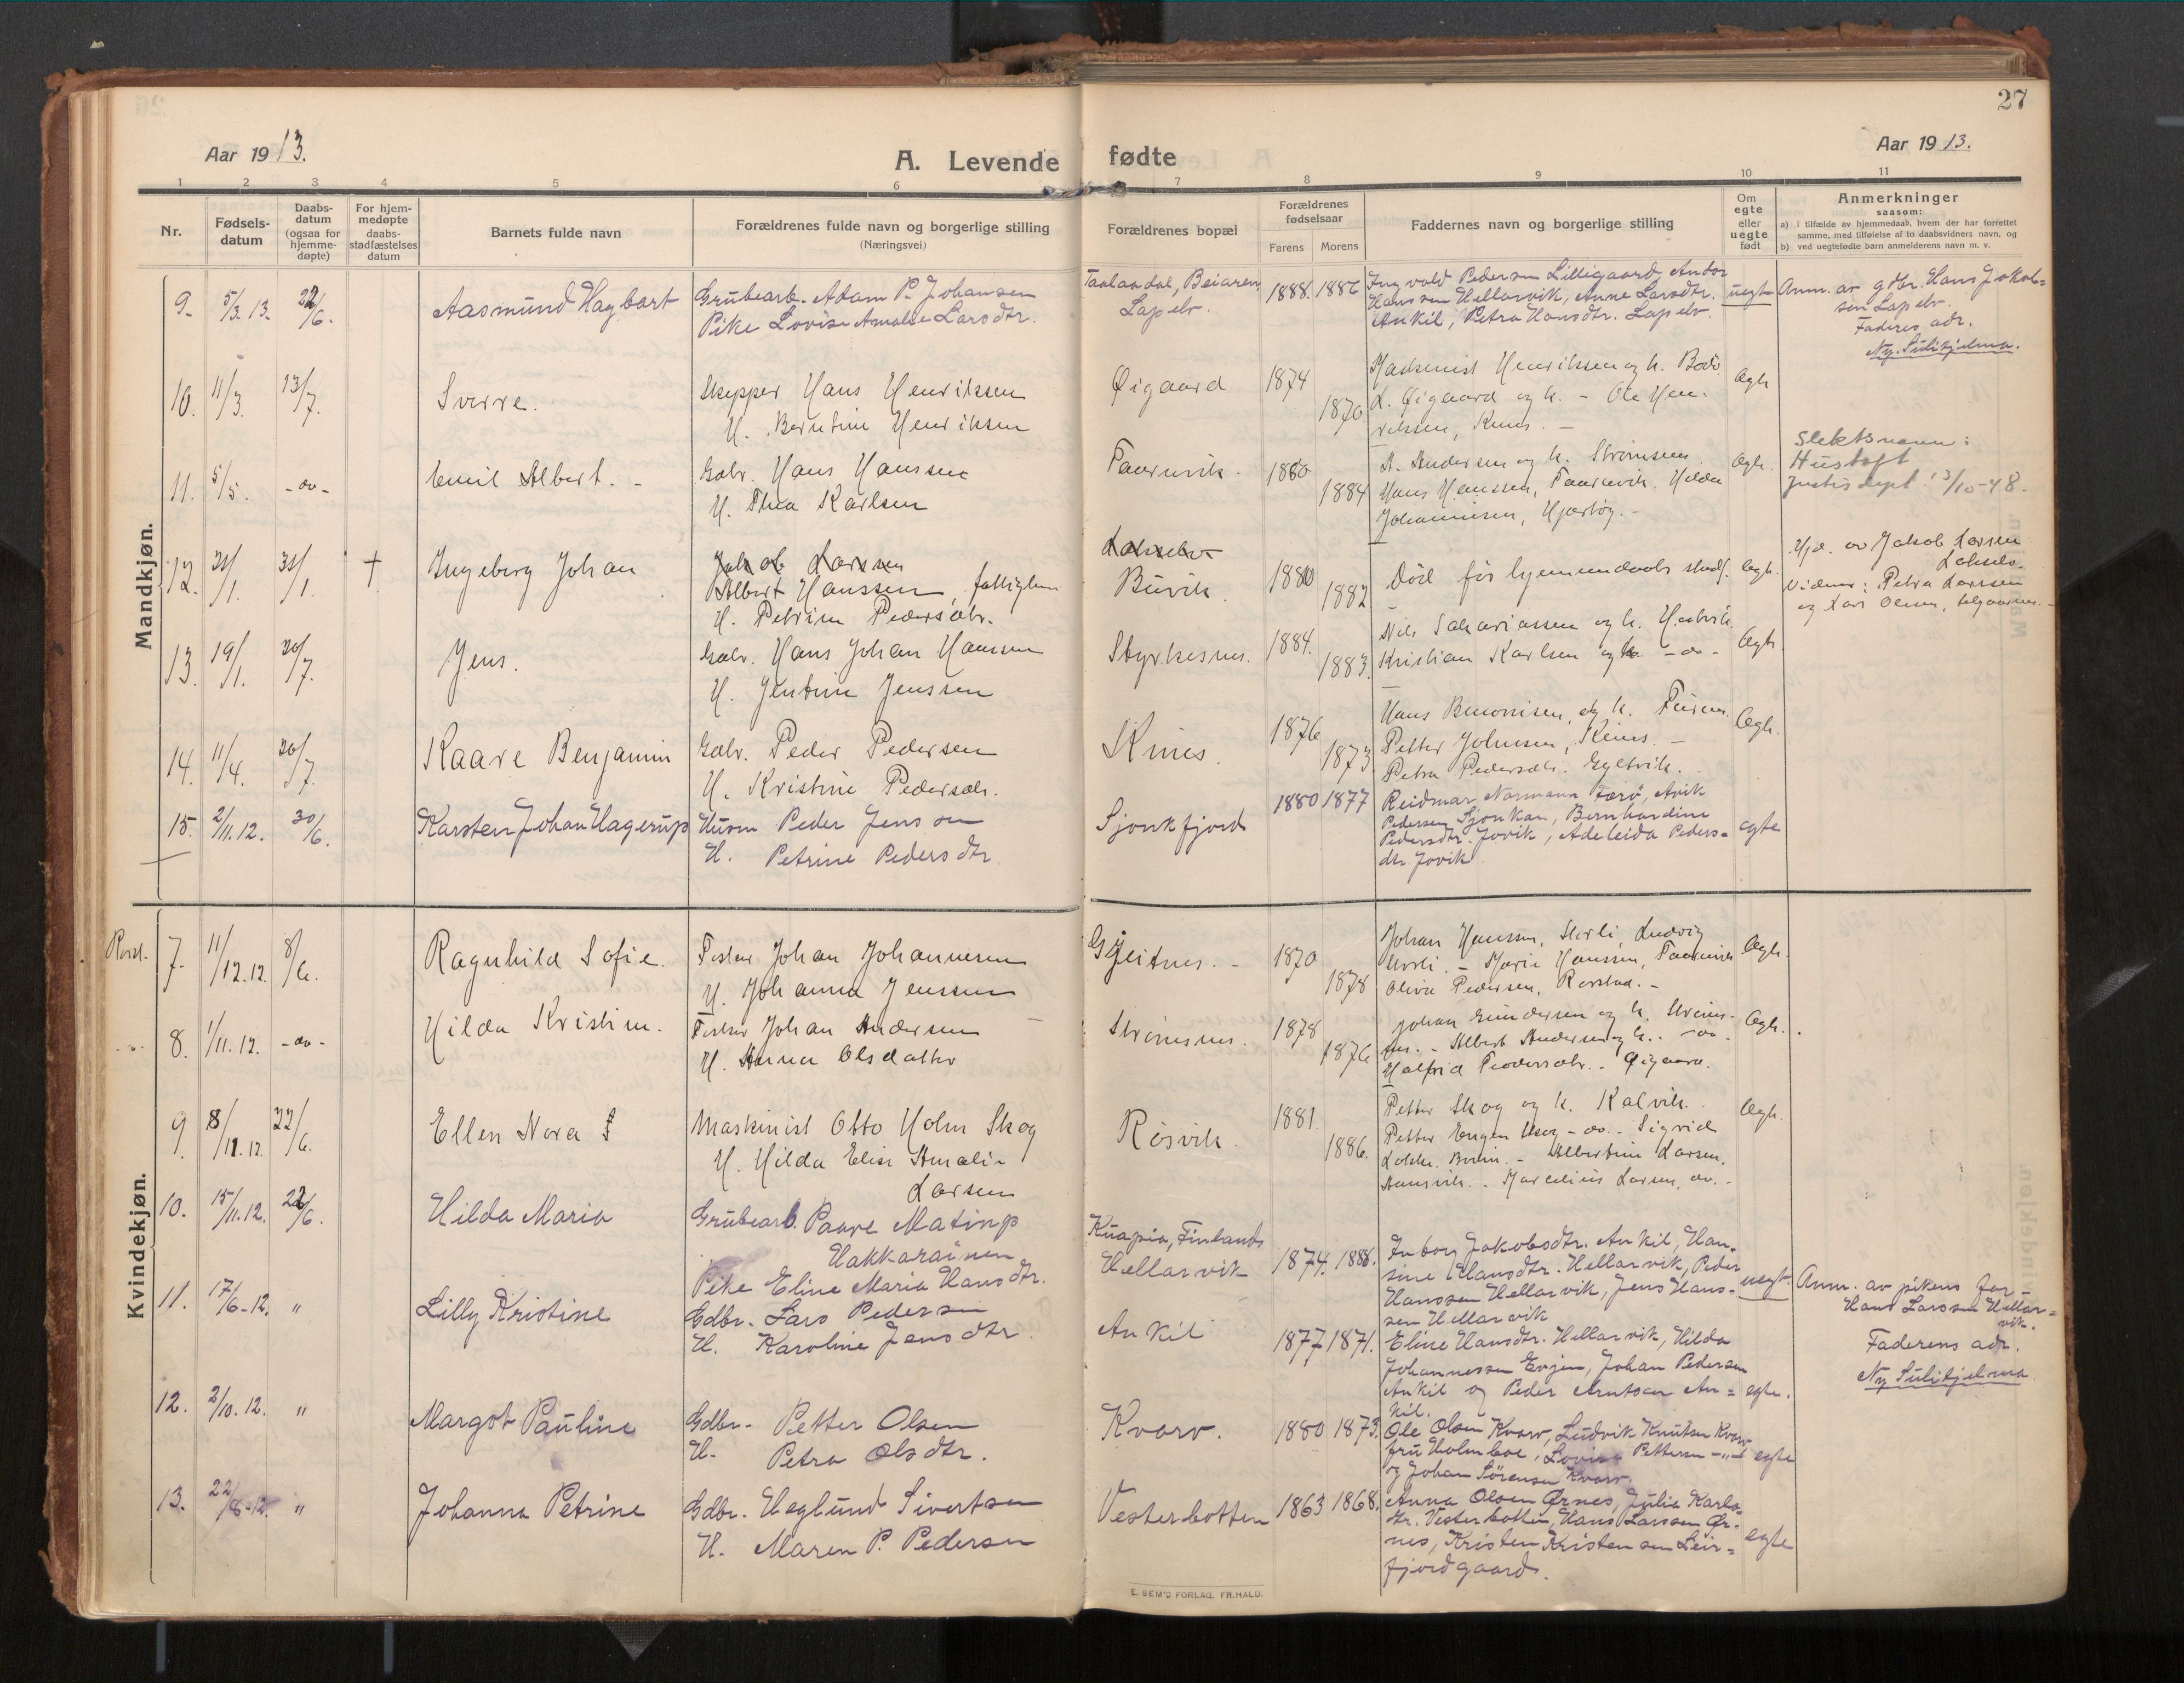 27
Aar 1913.
A. Levende fødte
Aar 1913.
1 2 3 4 5 6 7 8 9 10 11
Nr.
Fødsels-
datum
Daabs-
datum
(ogsaa for
hjemme-
døpte)
For hjem-
medøpte
daabs-
stadfæstelses
datum
Barnets fulde navn
Forældrenes fulde navn og borgerlige stilling
(Næringsvei)
Forældrenes bopæl
Forældrenes
fødselsaar
Farens Morens
Faddernes navn og borgerlige stilling
Om
egte
eller
uegte
født
Anmerkninger
saasom:
a) i tilfælde av hjemmedaab, hvem der har forrettet
samme, med tilføielse af to daabsvidners navn, og
b) ved uegtefødte barn anmelderens navn m. v.
Mandkjøn.
9. 5/3. 13. 22/6. Aasmund Hagbart
Grubearb. Adam P. Johansen
Pike Lovise Amalie Larsdtr.
Beiaren
Lapelv.
1888. 1886
Ingvald Pedersen Lilligaard, Andor
Hanssen Hellarvik, Anne Larsdtr.
Ankil, Petra Hansdtr. Lapelv.
uegte
Anm. av gdbr. Hans Jakob=
sen Lapelv.
Faderes adr.
Ny. Sulitjelma.
10. 11/3. 13/7. Sverre.
Skipper Hans Henriksen
H. Berntine Henriksen
Øigaard 1874
1870
Maskinist Henriksen og h. Bodø
L. Øigaard og h. - Ole Hen-
riksen,
Ægte
11. 5/5. -do- Emil Albert. -
Gdbr. Hans Hanssen
H. Thea Karlsen
Faurvik. 1880
1884
A. Andersen og h. Strømsnes
Hans Hanssen, Faurvik. Hilda
Johannesen,
Ægte.
Slektsnavn:
Hustoft
Justisdept. 13/10-48.
12. 31/1. 31/1. + Ingeberg Johan
Jakob Larssen
Albert Hanssen,
H. Petrine Pedersdtr.
Lakselv
Buvik. 1880
1882
Død før hjemmedaabs stadf.
Ægte.
Hjd. av Jakob Larsen
Lakselv.
Vidner: Petra Larssen
og Lars Olsen,
13. 19/1. 20/7. Jens.
Gdbr. Hans Johan Hanssen
H. Jentine Jenssen
Styrkesnes. 1884.
1883.
Nils Sakariassen og h.
Kristian Karlsen og h. -do-
Ægte
14. 11/4. 20/7. Kaare Benjamin
Gdbr. Peder Pedersen
H. Kristine Pedersdtr.
Kines. 1876
1873
Hans Benonisen, og h.
Petter Johnsen, Kines. -
Petra Pedersdtr. Gyltvik.
Ægte.
15. 2/11. 12. 30/6. Karsten Johan Hagerup
Husm Peder Jensen
H. Petrine Pedersdtr.
Sjonkfjord 1880 1877
Reidmar Normann Færø, Arvik
Pedersen Sjonkan, Bernhardine
Pedersdtr. Jovik, Adeleida Peders=
dtr Jovik
egte
Kvindekjøn.
7. 11/12. 12. 8/6. Ragnhild Sofie.
Johan Johannesen
H. Johanna Jenssen
Gjeitnes. - 1870
1878
Johan Hanssen, Storli, Ludvig
Storli. - Marie Hanssen,
Olive Pedersen, Rørstad. -
Ægte.
8. 1/11. 12. -do- Hilda Kristine.
Johan Andersen
H. Anna Olsdatter
Strømsnes. 1878
1876
Johan Gundersen og h. Strøms-
nes. - Albert Andersen og h. -do-
Halfrid Pedersdtr. Øigaard.
Ægte.
9. 8/11. 12. 22/6. Ellen Nora
Maskinist Otto Holm Skog
H. Hilda Elise Amalie
Larsen
Røsvik. 1881.
1886.
Petter Skog og h. Kalvik.
Petter Eugen Skog -do- Sigrid
Albertine Larsen,
Marcelius Larsen, do. -
Ægte.
10. 15/11. 12. 22/6. Hilda Maria
Grubearb. Paave Matinp
Hakkarainen
Pike Eline Maria Hansdtr.
Kuapio, Finland
Hellarvik 1874. 1886.
Inborg Jakobsdtr. Ankil, Han-
sine Hansdtr. Hellarvik, Peder
Hanssen Hellarvik, Jens Hans-
sen Hellarvik
uegt.
Anm. av pikens far -
Hans Larssen Hellar=
vik.
Faderens adr.
Ny Sulitjelma
11. 17/6-12. " Lilly Kristine
Gdbr. Lars Pedersen
H. Karoline Jensdtr
Ankil 1877 1871.
Eline Hansdtr. Hellarvik, Hilda
Johannessen Evjen, Johan Pedersen
Ankil og Peder Arntsen An=
kil.
egte.
12. 2/10. 12. " Margot Pauline
Gdbr. Petter Olsen
H. Petra Olsdtr.
Kvarv. 1880 1873.
Ole Olsen Kvarv, Ludvik Knutsen Kvarv
fru Holmboe, Lovise Pettersen -"-
og Johan Sörensen Kvarv.
egte
13. 22/8-12. " Johanna Petrine
Gdbr. Heglund Sivertsen
H. Maren P. Pedersen
Vesterbotten 1863 1868.
Anna Olsen Ørnes, Julia Karls
dtr. Vesterbotten, Hans Larssen Ør-
nes, Kristen Kristensen Leir=
fjordgaard.
egte
E. SEM'S FORLAG, FR.HALD.